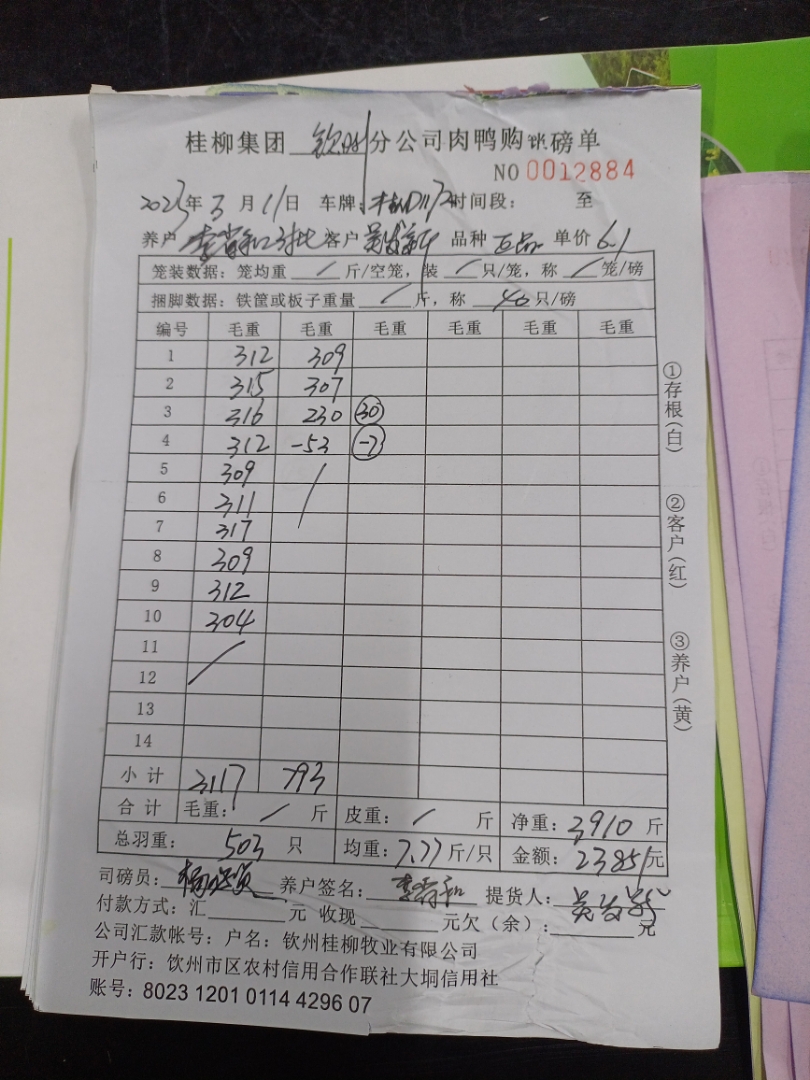 桂柳集团 钦州 分公司肉鸭购销磅单
NO 0012884
2023年3月11日 车牌: 时间段: 至
养户 客户 品种 正品 单价 6.1
笼装数据: 笼均重 / 斤/空笼, 装 / 只/笼, 称 / 笼/磅
捆脚数据: 铁筐或板子重量 / 斤, 称 40 只/磅
编号 毛重 毛重 毛重 毛重 毛重 毛重
1 312 309
2 315 307
3 316 230 30
4 312 -53 -7
5 309 /
6 311
7 317
8 309
9 312
10 304
11 /
12
13
14
小计 3117 793
合计 毛重: / 斤 皮重: / 斤 净重: 3910 斤
总羽重: 503 只 均重: 7.77 斤/只 金额: 23851 元
司磅员: 养户签名: 提货人:
付款方式: 汇 元 收现 元欠(余): 元
公司汇款帐号: 户名: 钦州桂柳牧业有限公司
开户行: 钦州市区农村信用合作联社大垌信用社
账号: 8023 1201 0114 4296 07
①存根(白)
②客户(红)
③养户(黄)